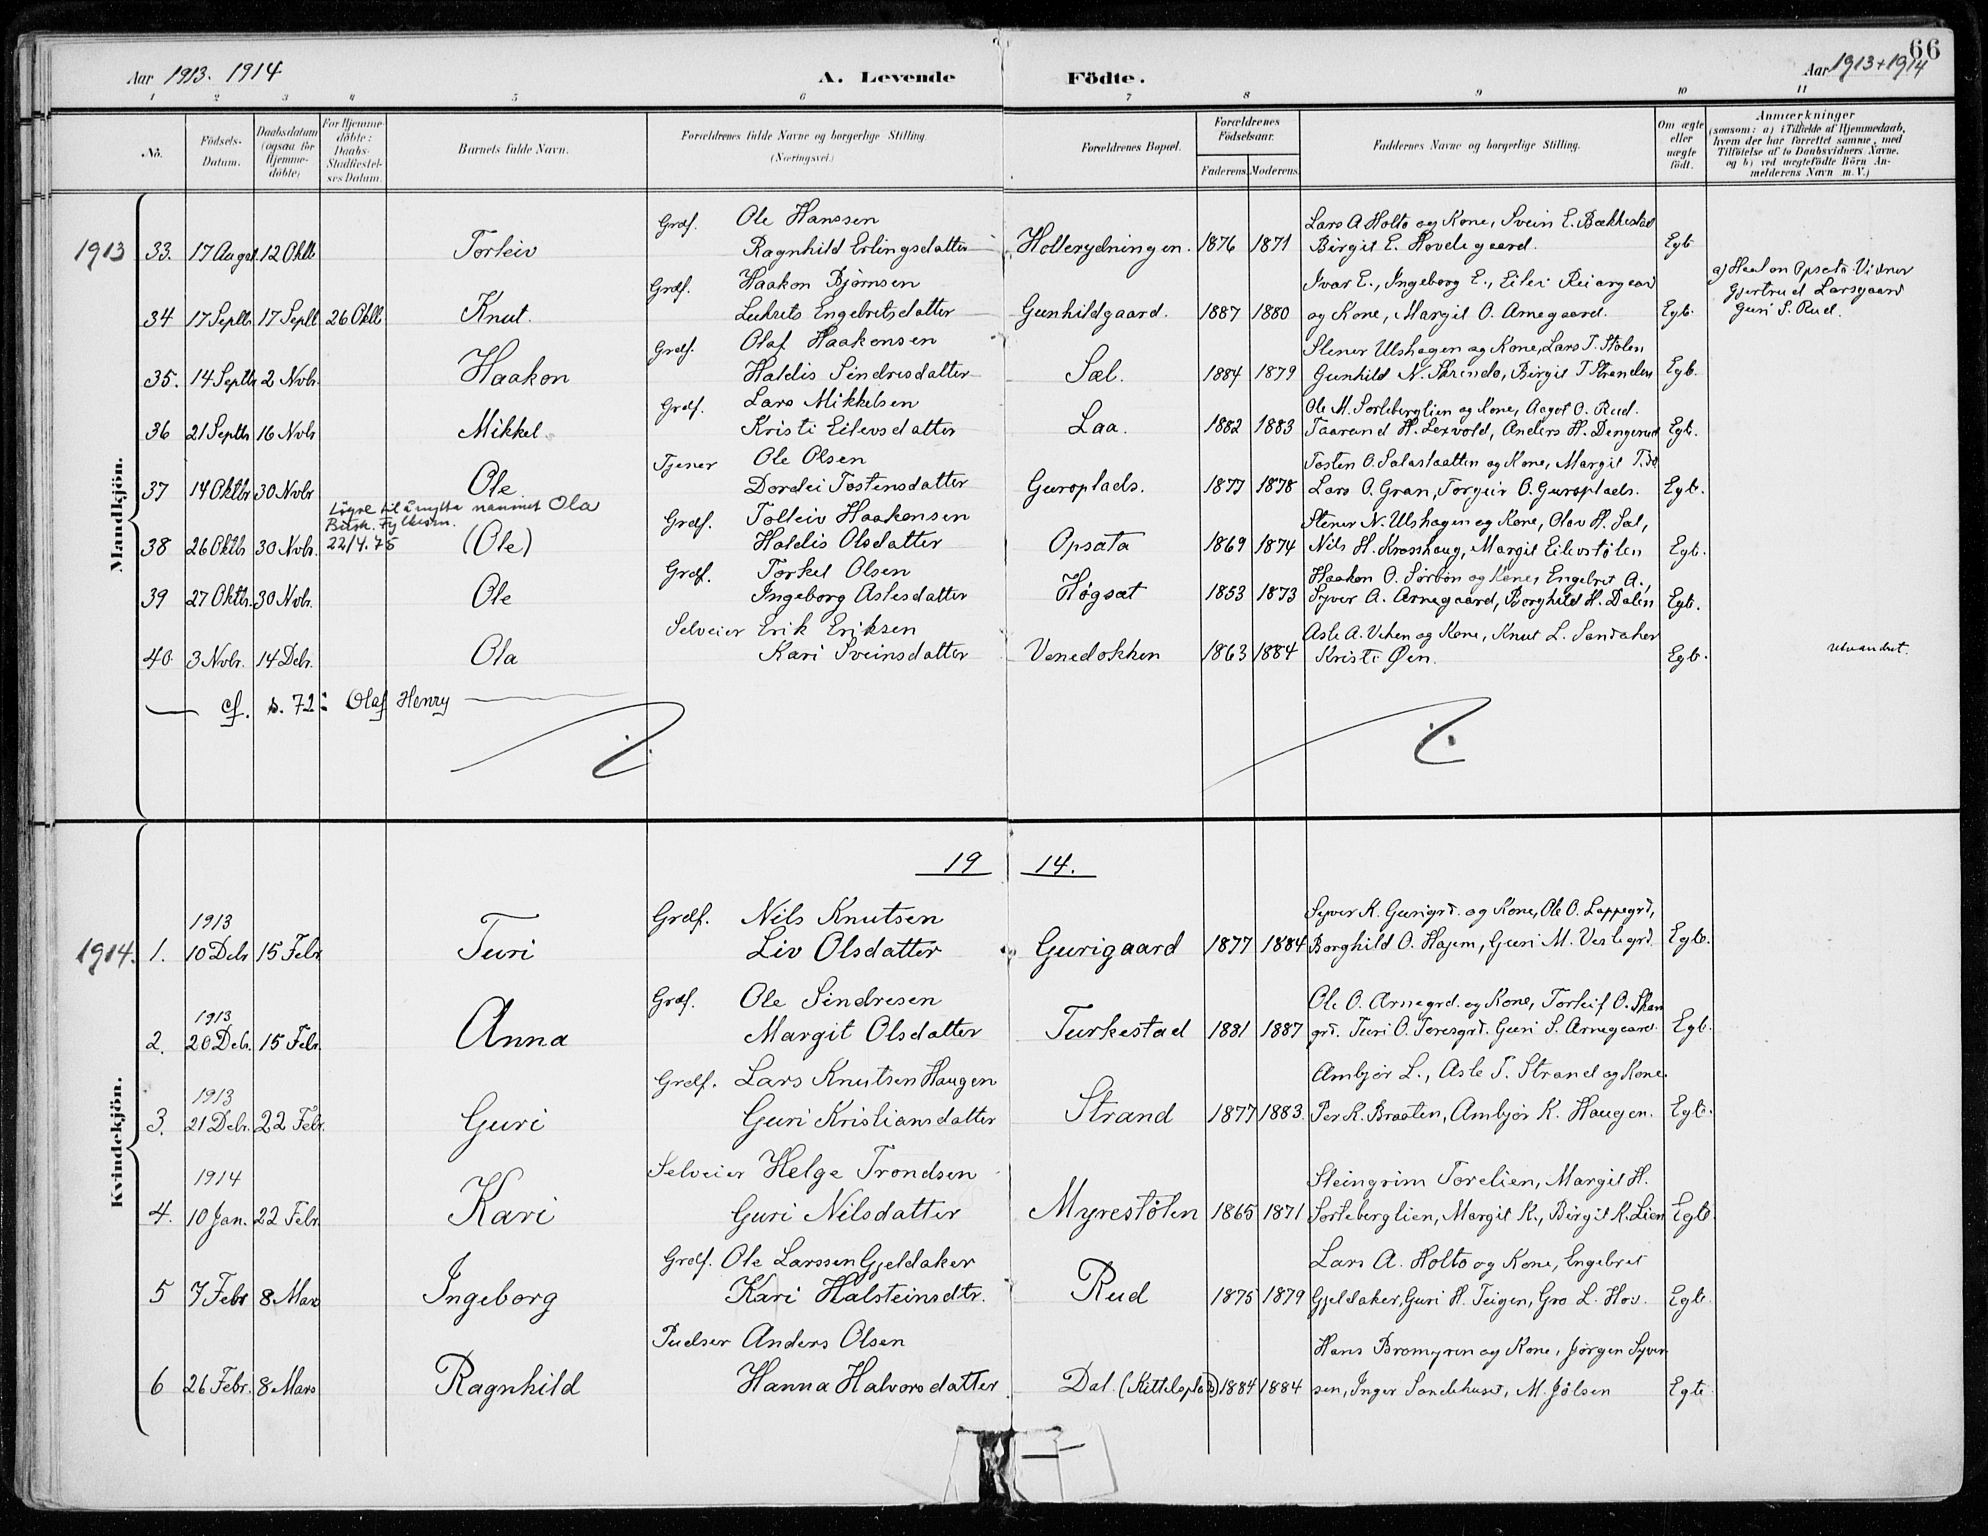 66
Aar 1913. 1914 A. Levende Födte. Aar 1913+1914
1 2 3 4 5 6 7 8 9 10 11
No. Födsels-Datum. Daabsdatum (ogsaa for Hjemme-döbte) For Hjemme-döbte: Daabs-Stadfæstel-ses Datum. Barnets fulde Navn. Forældrenes fulde Navne og borgerlige Stilling. (Næringsvei.) Forældrenes Bopæl. Forældrenes Födselsaar. Faderens. Moderens. Faddernes Navne og borgerlige Stilling. Om ægte eller uægte født. Anmærkninger (saasom: a) i Tilfælde af Hjemmedaab, hvem der har forrettet samme, med Tilföielse af to Daabsvidners Navne, og b) ved uægtefödte Börn An-melderens Navn m. V.)
Mandkjön.
Grdf. Ole Hanssen Lars A Holto og Kone, Svein E. Bækkestad
1913 33. 17 Augst. 12 Oktb Torleiv Ragnhild Erlingsdatter Hollerydningen. 1876 1871 Birgit E. Hovdegaard. Egt.
Grdf. Haakon Bjørnsen Ivar E., Ingeborg E., Eilev Reiargaard a) Haakon Opsata. Vidner
34 17 Septb. 17 Septb 26 Oktb Knut. Lukrets Engebretsdatter Gunhildgaard. 1887 1880 og Kone, Margit O. Arnegaard. Egt. Gjertrud Larsgaard
Guri S. Rud.
Grdf. Olaf Haakonsen Stener Ulshagen og Kone, Lars T. Stølen
35. 14 Septb 2 Novb. Haakon Haldis Sindresdatter Sæl. 1884 1879 Gunhild N. Skrindo, Birgit T Stranden Egt.
Grdf. Lars Mikkelsen Ole M. Sorteberglien og Kone, Aagot O. Rud.
36 21 Septb 16 Novb Mikkel Kristi Eilevsdatter Laa. 1882 1883 Taarand H. Lexvold, Anders H. Dengerud Egt.
Tjener Ole Olsen Tosten O. Salastaatten og Kone, Margit T. do
37 14 Oktbr 30 Novbr Ole Dordei Tostensdatter Guroplads. 1877 1878 Lars O. Gran, Torgeir O. Guroplads. Egt.
Løyve til å nytta nammet Ola
Busk. Fylkesm.
22/4.75
Grdf. Tolleiv Haakensen Stener N. Ulshagen og Kone, Olav H. Sal,
38 26 Oktb 30 Novb. (Ole) Haldis Olsdatter Opsata 1869 1874 Nils H. Krosshaug, Margit Eilevstølen Egt.
Grdf. Torkel Olsen Haakon O. Sørbøn og Kone, Engebret A.,
39 27 Oktb. 30 Novb. Ole Ingeborg Aslesdatter Høgset 1853 1873 Syver A. Arnegaard, Borghild H. Dalen Egt.
Selveier Erik Eriksen Asle A. Vehen og Kone, Knut L. Sandaker
40 3 Novb. 14 Debr. Ola Kari Sveinsdatter Venedokken 1863 1884 Kristi Øen. Egt. utvandret.
cf. s. 72: Olaf Henry
1914.
Kvindekjön.
1913 Grdf. Nils Knutsen Syver K. Gurigrd. og Kone, Ole O. Lappegrd,
1914. 1. 10 Debr 15 Febr. Turi Liv Olsdatter Gurigaard 1877 1884 Borghild O. Hagem, Guri M. Veslegrd. Egte.
1913 Grdf. Ole Sindresen Ole O. Arnegrd. og Kone, Torleif O. Skar
2. 20 Debr. 15 Febr. Anna Margit Olsdatter Turkestad 1881 1887 grd. Turi O. Toresgrd. Guri S. Arnegaard. Egt.
1913 Grdf. Lars Knutsen Haugen Ambjør L., Asle T. Strand og Kone
3. 21 Debr. 22 Febr. Guri Guri Kristiansdatter Strand 1877 1883. Per K. Braaten, Ambjør K. Haugen. Egte.
1914 Selveier Helge Trondsen Steingrim Torelien, Margit H.
4. 10 Jan. 22 Febr. Kari Guri Nilsdatter Myrestølen 1865 1871 Sorteberglien, Margit K., Birgit K. Lien Egte.
Grdf. Ole Larssen Gjeldaker Lars A. Holto og Kone, Engebret
5 7 Febr 8 Mars Ingeborg Kari Halsteinsdtr. Rud 1875 1879 Gjeldaker, Guri H. Teigen, Gro L. Hov. Egte.
Pudser Anders Olsen Hans Bromyren og Kone, Jørgen Syver
6 26 Febr. 8 Mars Ragnhild Hanna Halvorsdatter Dal (Kittelsplads) 1884 1884 sen, Inger Sandehuset, M. Jølsen Egte.